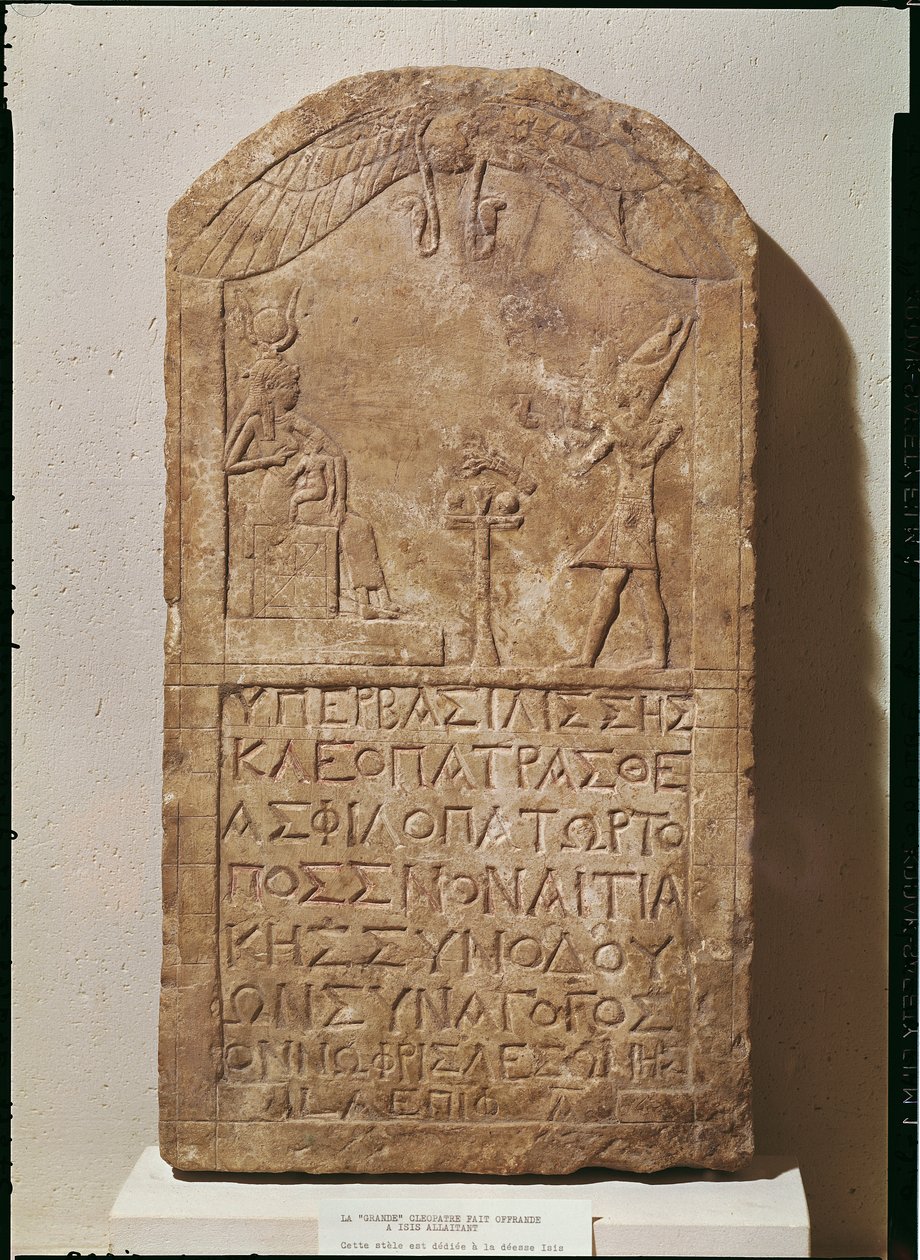 ΥΠΕΡΒΑΣΙΛΙΣΣΗΣ
ΚΛΕΟΠΑΤΡΑΣΘΕ
ΑΣΦΙΛΟΠΑΤΩΡΤΟ
ΠΟΣΣΝΟΝΑΙΤΙΑ
ΚΗΣΣΥΝΟΔΟΥ
ΩΝΣΥΝΑΓΟΓΟΣ
ΟΝΝΩΦΡΙΣΛΕΣΩΝΗΣ
LΑ ΕΠΙΦ Α
LA "GRANDE" CLEOPATRE FAIT OFFRANDE
A ISIS ALLAITANT
Cette stèle est dédiée à la déesse Isis